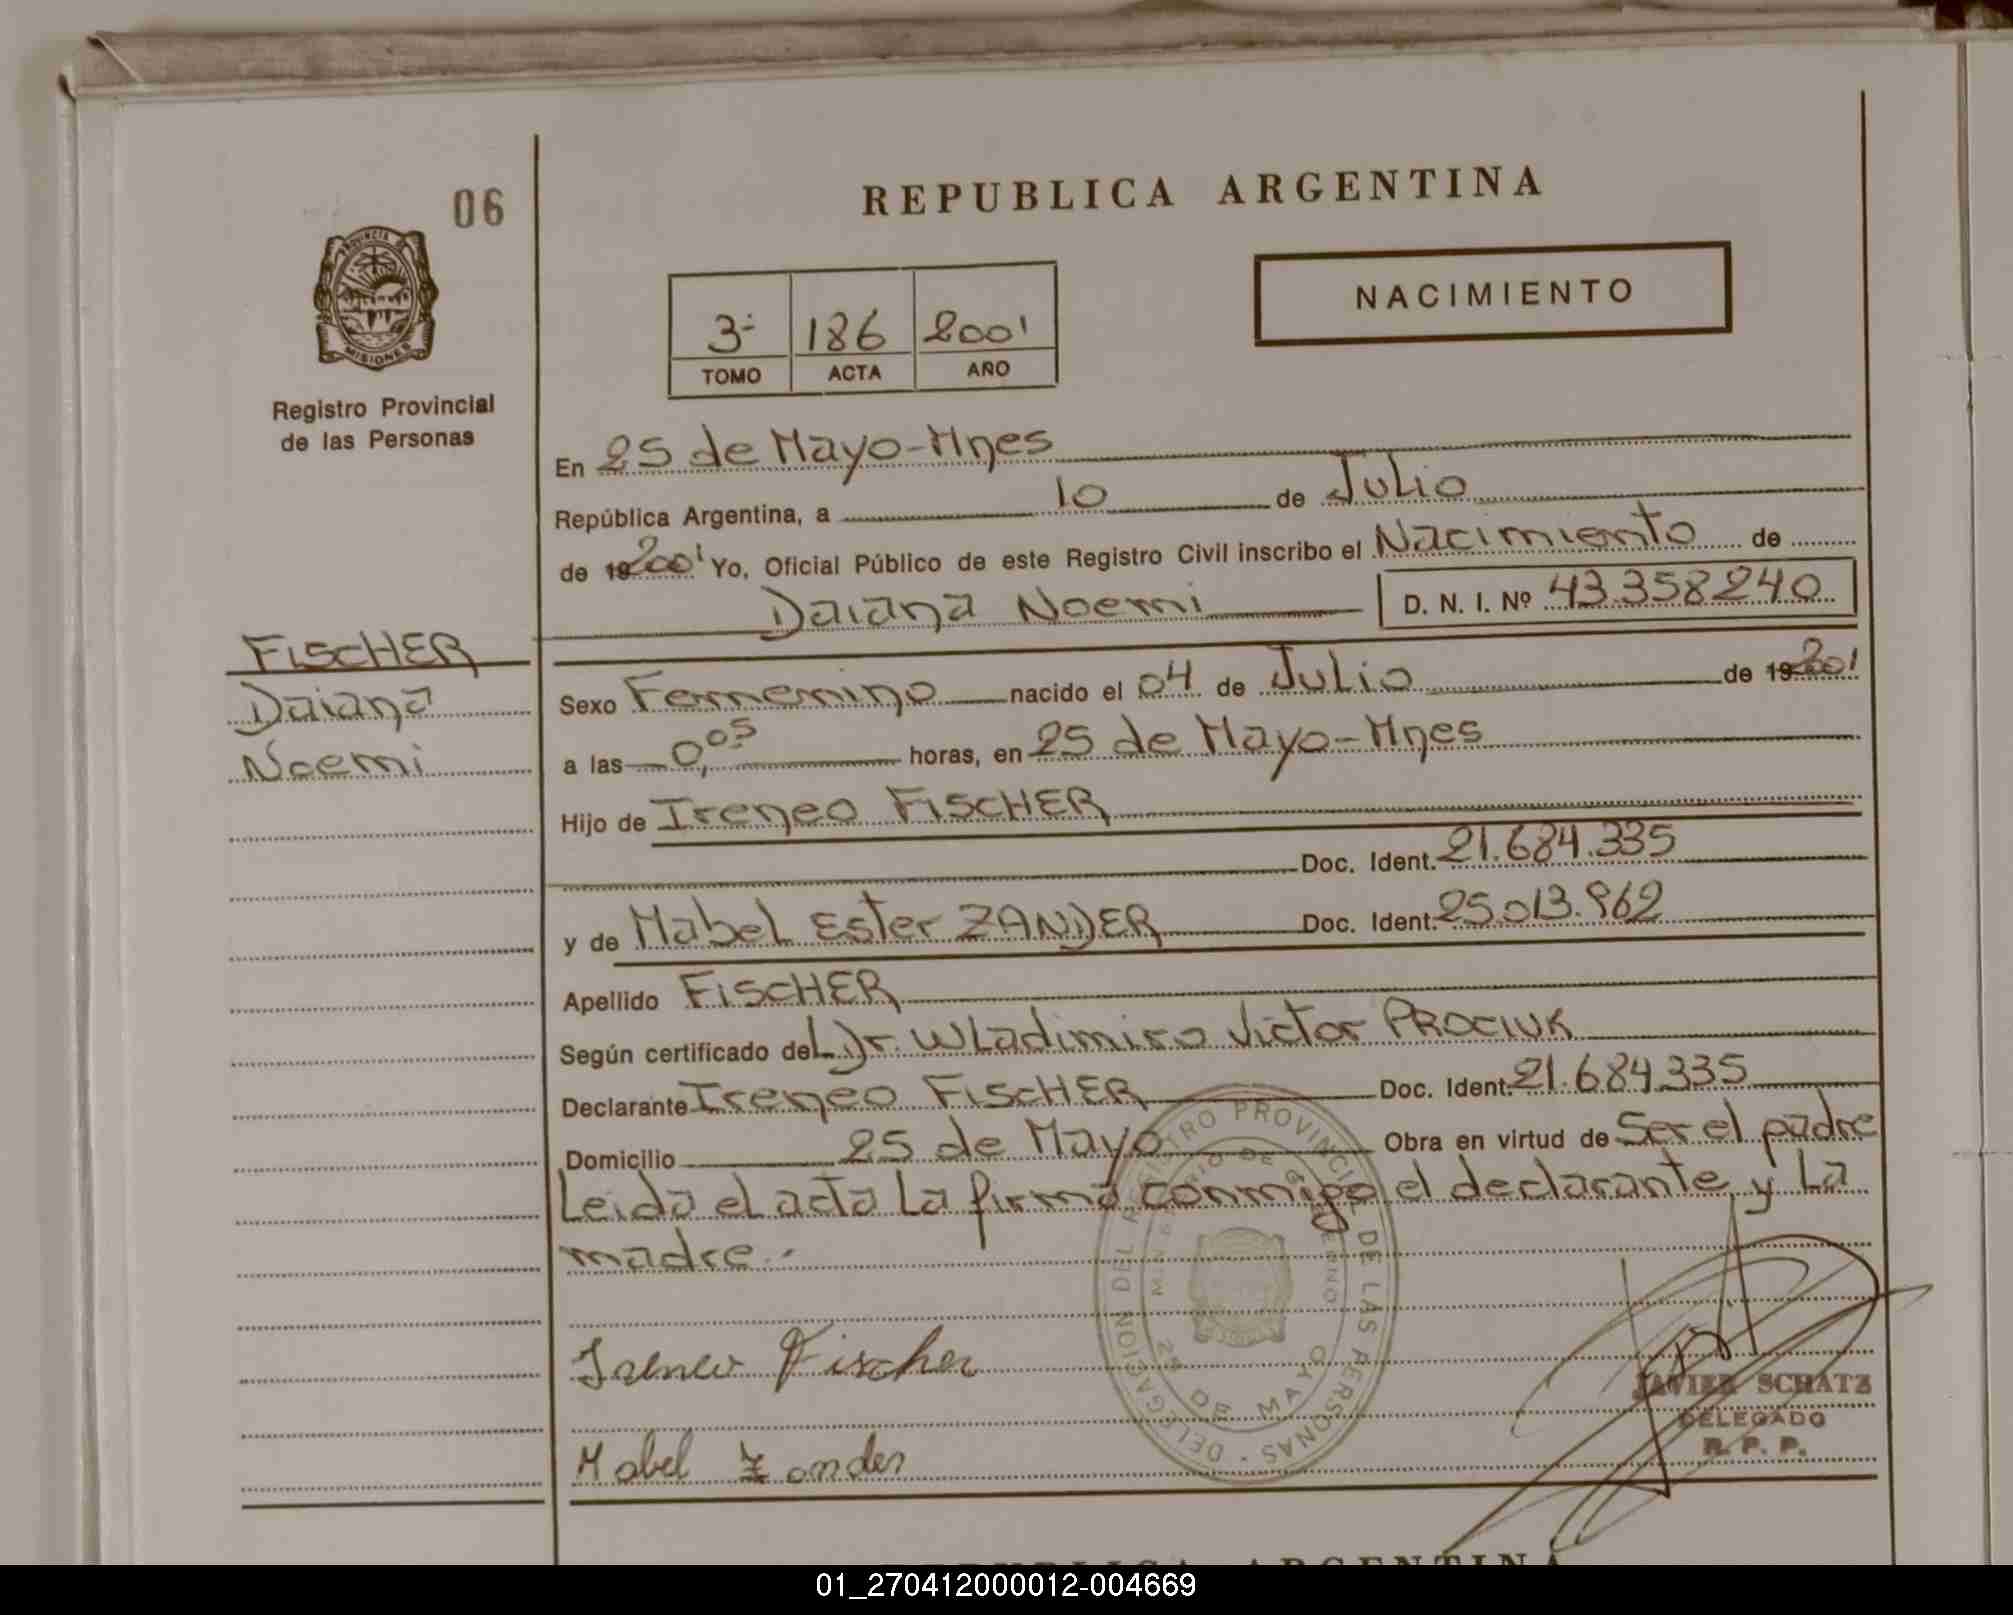 06
REPUBLICA ARGENTINA
PROVINCIA DE
MISIONES
Registro Provincial
de las Personas
NACIMIENTO
3- 186 2001
TOMO ACTA AÑO
En 25 de Mayo-Mnes
República Argentina, a 10 de Julio
de 19 2001 Yo, Oficial Público de este Registro Civil inscribo el Nacimiento de
Daiana Noemi D. N. I. Nº 43.358240
FiscHER
Daiana
Noemi
Sexo Femenino nacido el 04 de Julio de 19 2001
a las 0,05 horas, en 25 de Mayo-Mnes
Hijo de Ireneo FiscHER
Doc. Ident. 21.684.335
y de Mabel Ester ZANDER Doc. Ident. 25.013.962
Apellido FiscHER
Según certificado del Dr. Wladimiro Victor PROCIUK
Declarante Ireneo FiscHER Doc. Ident. 21.684.335
Domicilio 25 de Mayo Obra en virtud de Ser el padre
Leida el acta la firma conmigo el declarante y La
madre.-
DELEGACION DEL REGISTRO PROVINCIAL DE LAS PERSONAS
MINISTERIO DE GOBIERNO
25 DE MAYO
Ireneo Fischer
JAVIER SCHATZ
DELEGADO
R. P. P.
Mabel Zander
REPUBLICA ARGENTINA
01_270412000012-004669